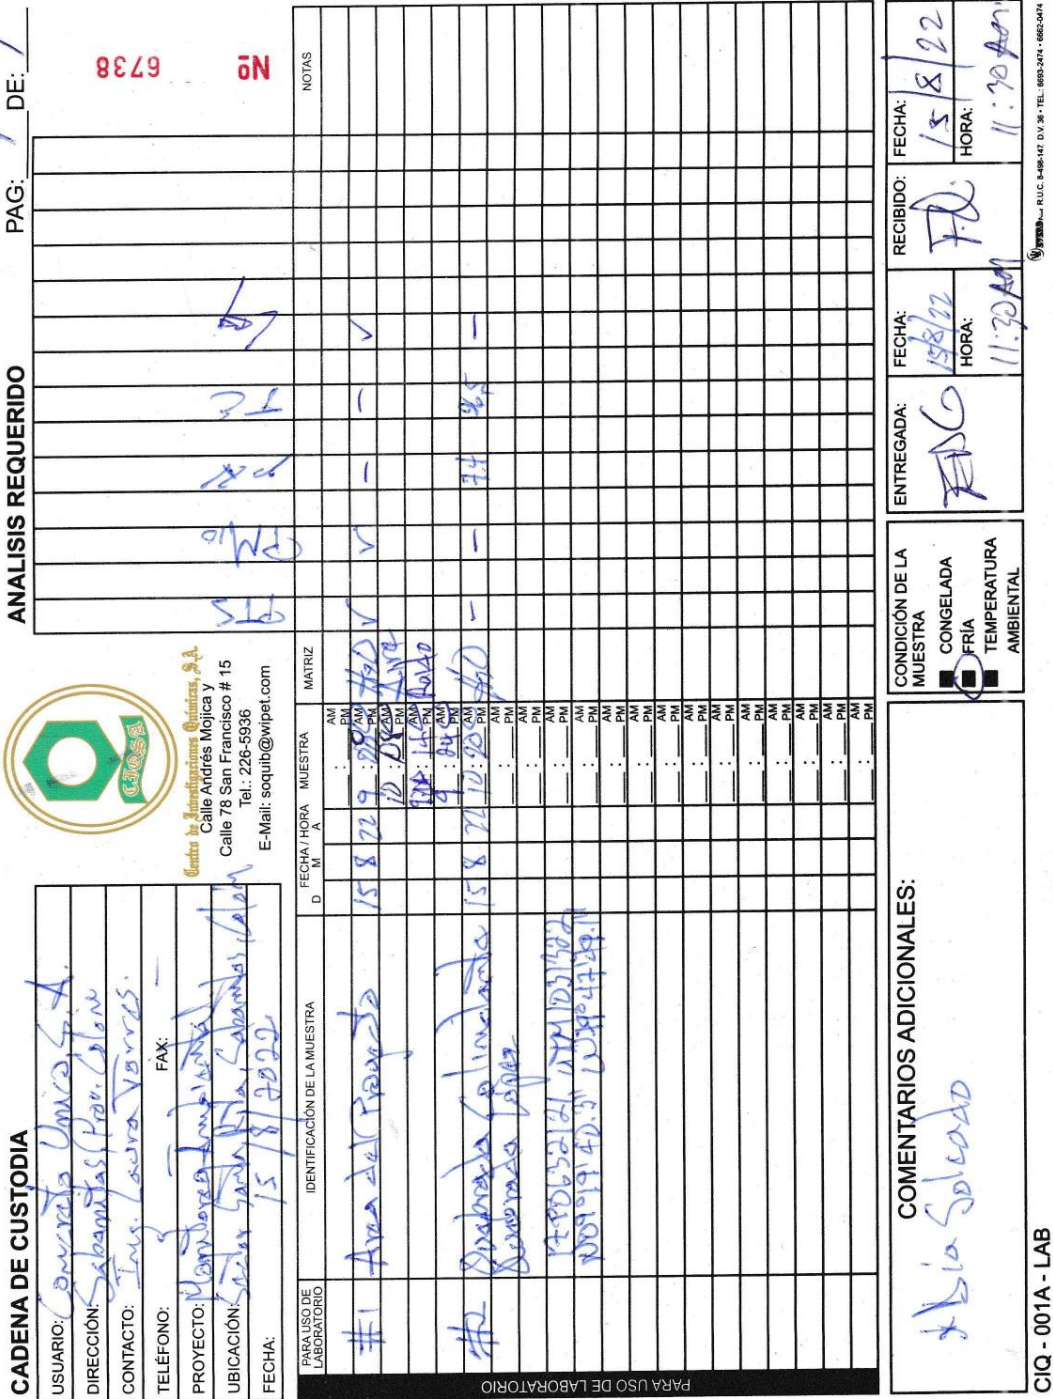 CADENA DE CUSTODIA
USUARIO: Concreto Unico, S.A.
DIRECCIÓN: Sabanitas, Prov. Colón
CONTACTO: Ing. Torres
TELÉFONO: FAX: —
PROYECTO: Monitoreo Ambiental
UBICACIÓN: Sector Santa Rita, Sabanitas, Colón
FECHA: 15/8/2022
CIQSA
Centro de Investigaciones Químicas, S.A.
Calle Andrés Mojica y
Calle 78 San Francisco # 15
Tel.: 226-5936
E-Mail: soquib@wipet.com
ANALISIS REQUERIDO
PAG: 1 DE: 1
Nº 6738
PTS PM10 pH T°C
PARA USO DE LABORATORIO
IDENTIFICACIÓN DE LA MUESTRA
FECHA / HORA MUESTRA
D M A
MATRIZ
NOTAS
AM
PM
#1 Area del Proyecto 15 8 22 9 H2O √ √ — — √
Aire
Ruido
#2 Quebrada Colindante 15 8 22 10:20 H2O — — 7.4 —
Quebrada López
PARA USO DE LABORATORIO
COMENTARIOS ADICIONALES:
Día Soleado
CONDICIÓN DE LA MUESTRA
CONGELADA
FRÍA
TEMPERATURA AMBIENTAL
ENTREGADA: EDG
FECHA: 15/8/22
HORA: 11:30 AM
RECIBIDO: F.Q.
FECHA: 15/8/22
HORA: 11:30 AM
CIQ - 001A - LAB
R.U.C. 8-498-147 D.V. 36 • TEL.: 6693-2474 • 6662-0474